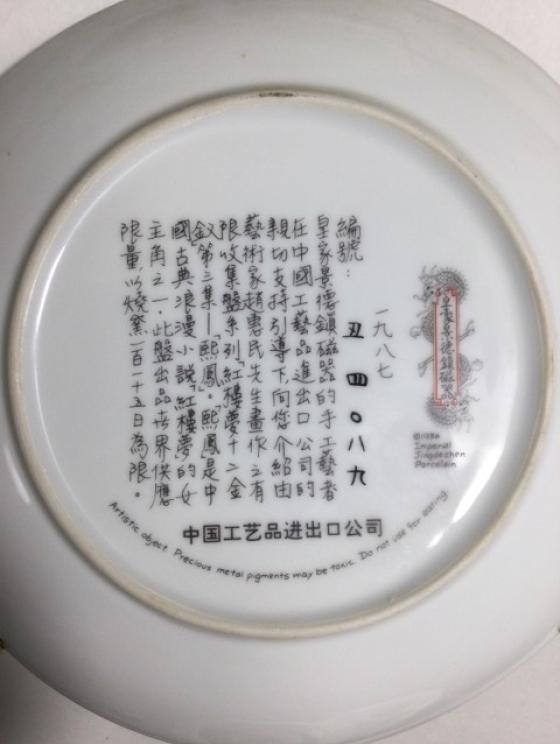 皇家景德鎮磁器
©1986
Imperial
Jingdezhen
Porcelain
一九八七
丑四〇八九
編號：
皇家景德鎮磁器的手工藝者
在中國工藝品進出口公司的
親切支持引導下,向您介紹由
藝術家趙惠民先生畫作之有
限收集盤系列「紅樓夢十二金
釵」第三集—「熙鳳」。熙鳳是中
國古典浪漫小説「紅樓夢」的女
主角之一。此盤出品世界供應
限量,以燒窯一百十五日為限。
中国工艺品进出口公司
Artistic object. Precious metal pigments may be toxic. Do not use for eating.